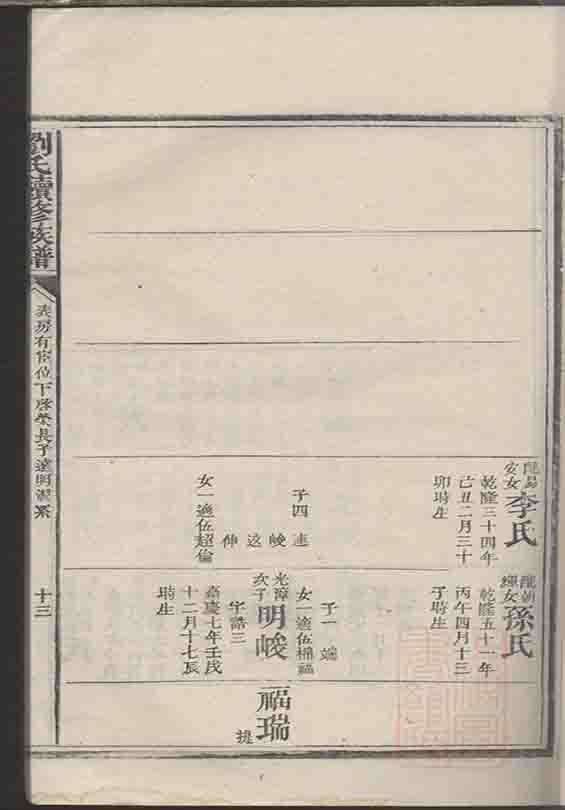 劉氏續修族譜
表房有宦位下啓榮長子達明派系
十三
安女
李氏
乾隆三十四年
己丑二月三十
卯時生
子四
連
峻
这
伸
女一適伍超倫
孫氏
乾隆五十一年
丙午四月十三
子時生
子一 端
女一適伍棉福
光漳
次子
明峻
字誥三
嘉慶七年壬戌
十二月十七辰
時生
福
瑞
提